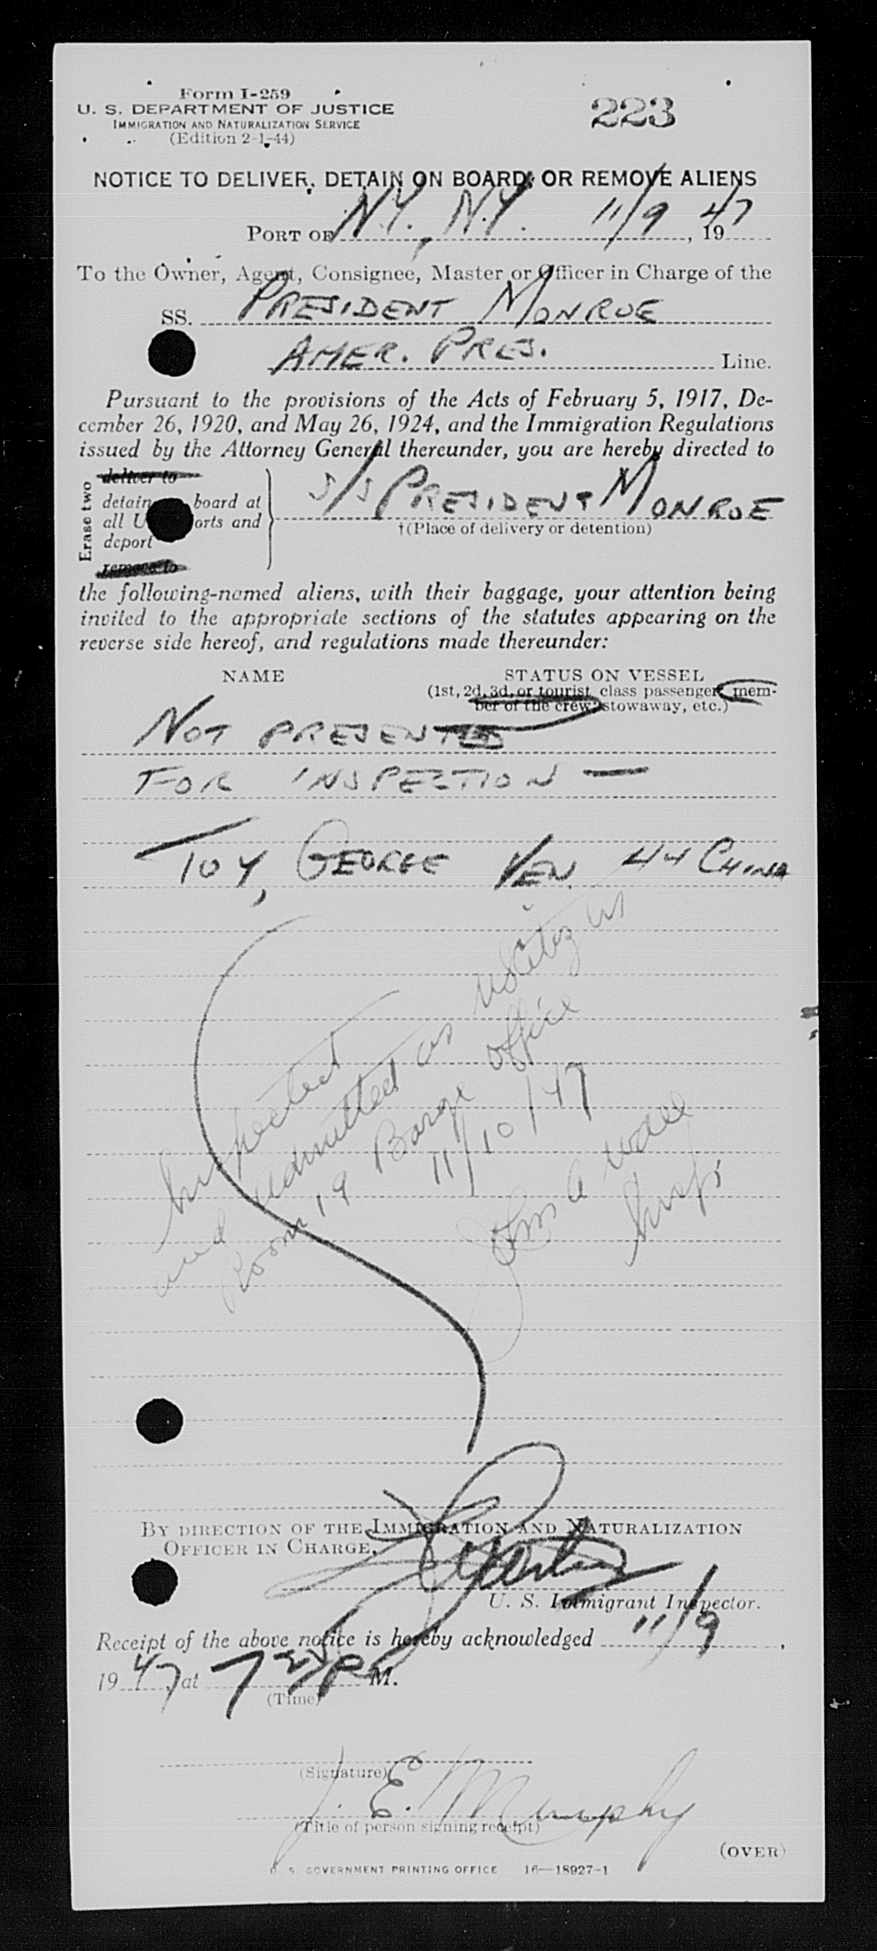 Form I-259
U. S. DEPARTMENT OF JUSTICE
IMMIGRATION AND NATURALIZATION SERVICE
(Edition 2-1-44)
223
NOTICE TO DELIVER, DETAIN ON BOARD, OR REMOVE ALIENS
PORT OF N.Y., N.Y. 11/9, 1947
To the Owner, Agent, Consignee, Master or Officer in Charge of the
SS. PRESIDENT MONROE
AMER. PRES. Line.
Pursuant to the provisions of the Acts of February 5, 1917, De-
cember 26, 1920, and May 26, 1924, and the Immigration Regulations
issued by the Attorney General thereunder, you are hereby directed to
Erase two
deliver to
detain board at
all U orts and
deport
remove to
S/S PRESIDENT MONROE
†(Place of delivery or detention)
the following-named aliens, with their baggage, your attention being
invited to the appropriate sections of the statutes appearing on the
reverse side hereof, and regulations made thereunder:
NAME STATUS ON VESSEL
(1st, 2d, 3d, or tourist class passenger, mem-
ber of the crew, stowaway, etc.)
NOT PRESENTED
FOR INSPECTION —
TOY, GEORGE YEN 44 CHINA
Inspected
and admitted as US Citizen
Room 19 Barge office
11/10/47
John A Wall
Insp.
BY DIRECTION OF THE IMMIGRATION AND NATURALIZATION
OFFICER IN CHARGE,
U. S. Immigrant Inspector.
Receipt of the above notice is hereby acknowledged 11/9,
1947, at 7 PM.
(Time)
(Signature)
J. E. Murphy
(Title of person signing receipt)
(OVER)
U. S. GOVERNMENT PRINTING OFFICE 16—18927-1